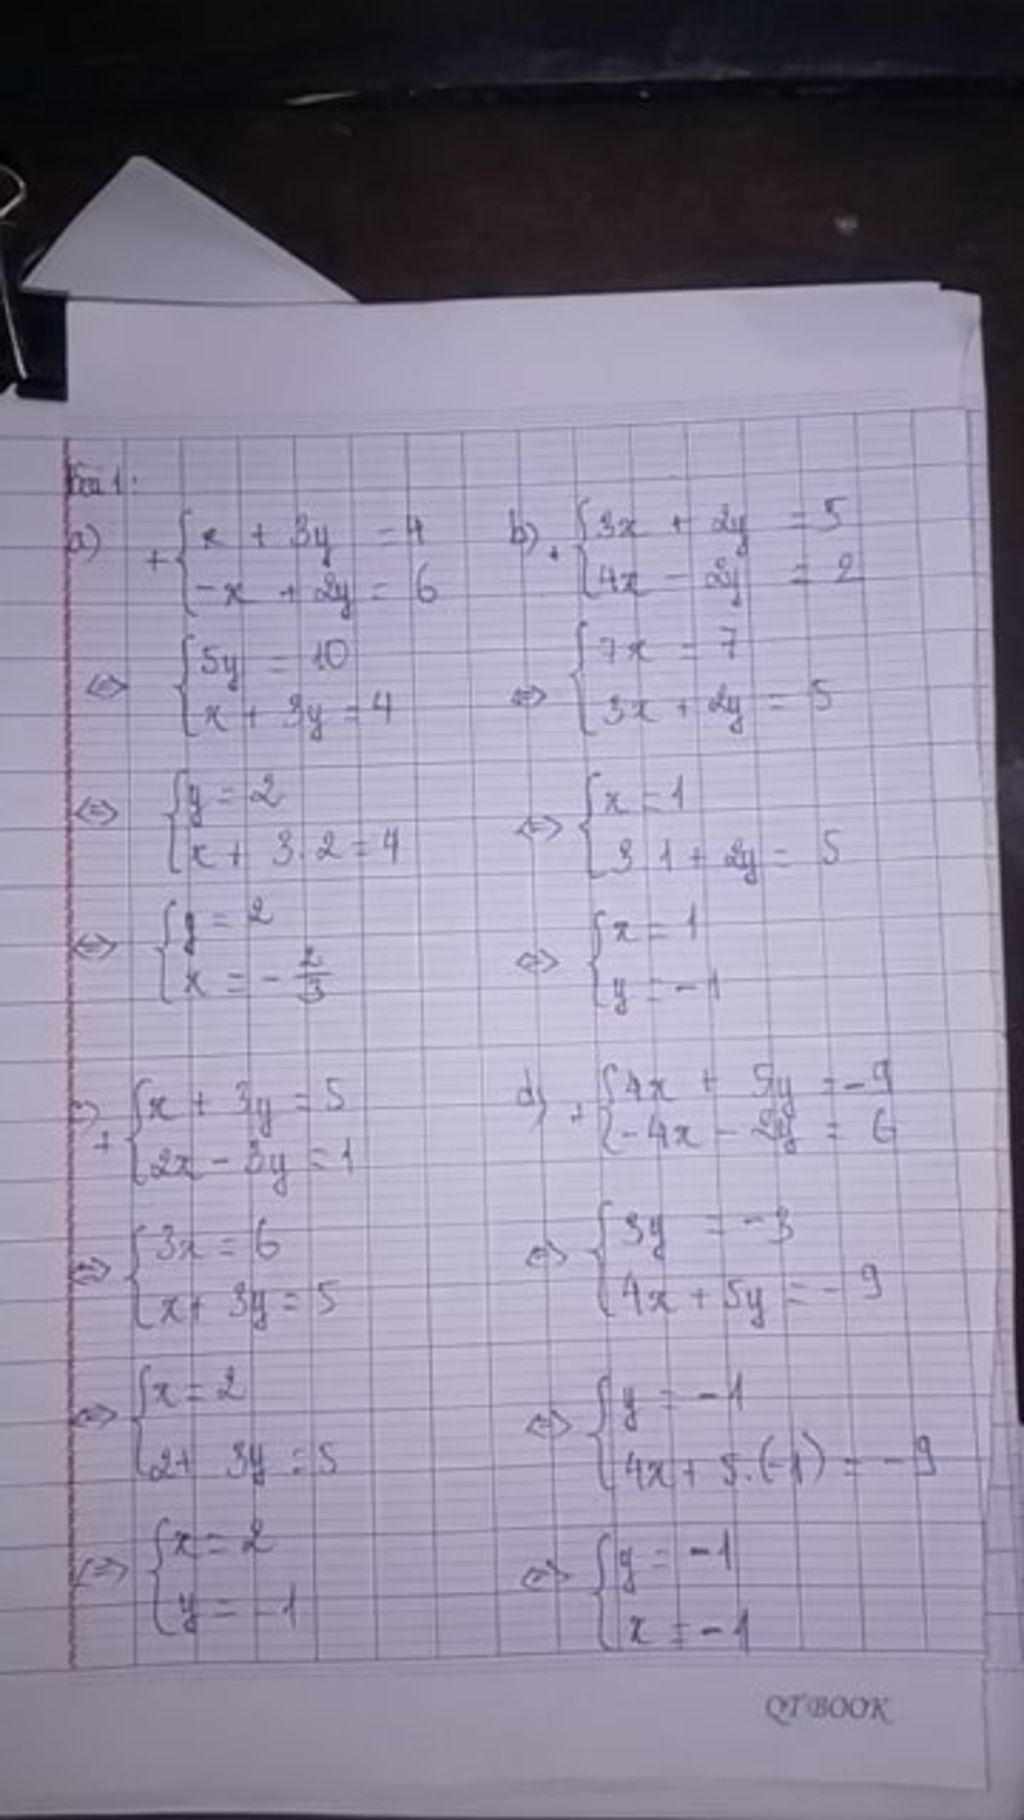 Bài 1:
a) + { x + 3y = 4
-x + 2y = 6
<=> { 5y = 10
x + 3y = 4
<=> { y = 2
x + 3.2 = 4
<=> { y = 2
x = - 2/3
b) + { 3x + 2y = 5
4x - 2y = 2
<=> { 7x = 7
3x + 2y = 5
<=> { x = 1
3.1 + 2y = 5
<=> { x = 1
y = -1
c) + { x + 3y = 5
2x - 3y = 1
<=> { 3x = 6
x + 3y = 5
<=> { x = 2
2 + 3y = 5
<=> { x = 2
y = -1
d) + { 4x + 5y = -9
-4x - 2y = 6
<=> { 3y = -3
4x + 5y = -9
<=> { y = -1
4x + 5.(-1) = -9
<=> { y = -1
x = -1
QTBOOK